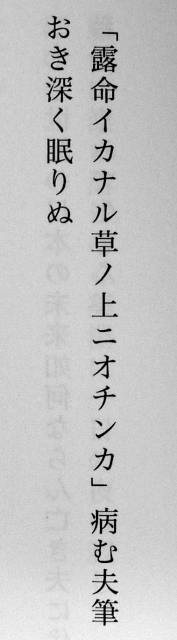 「露命イカナル草ノ上ニオチンカ」病む夫筆
おき深く眠りぬ